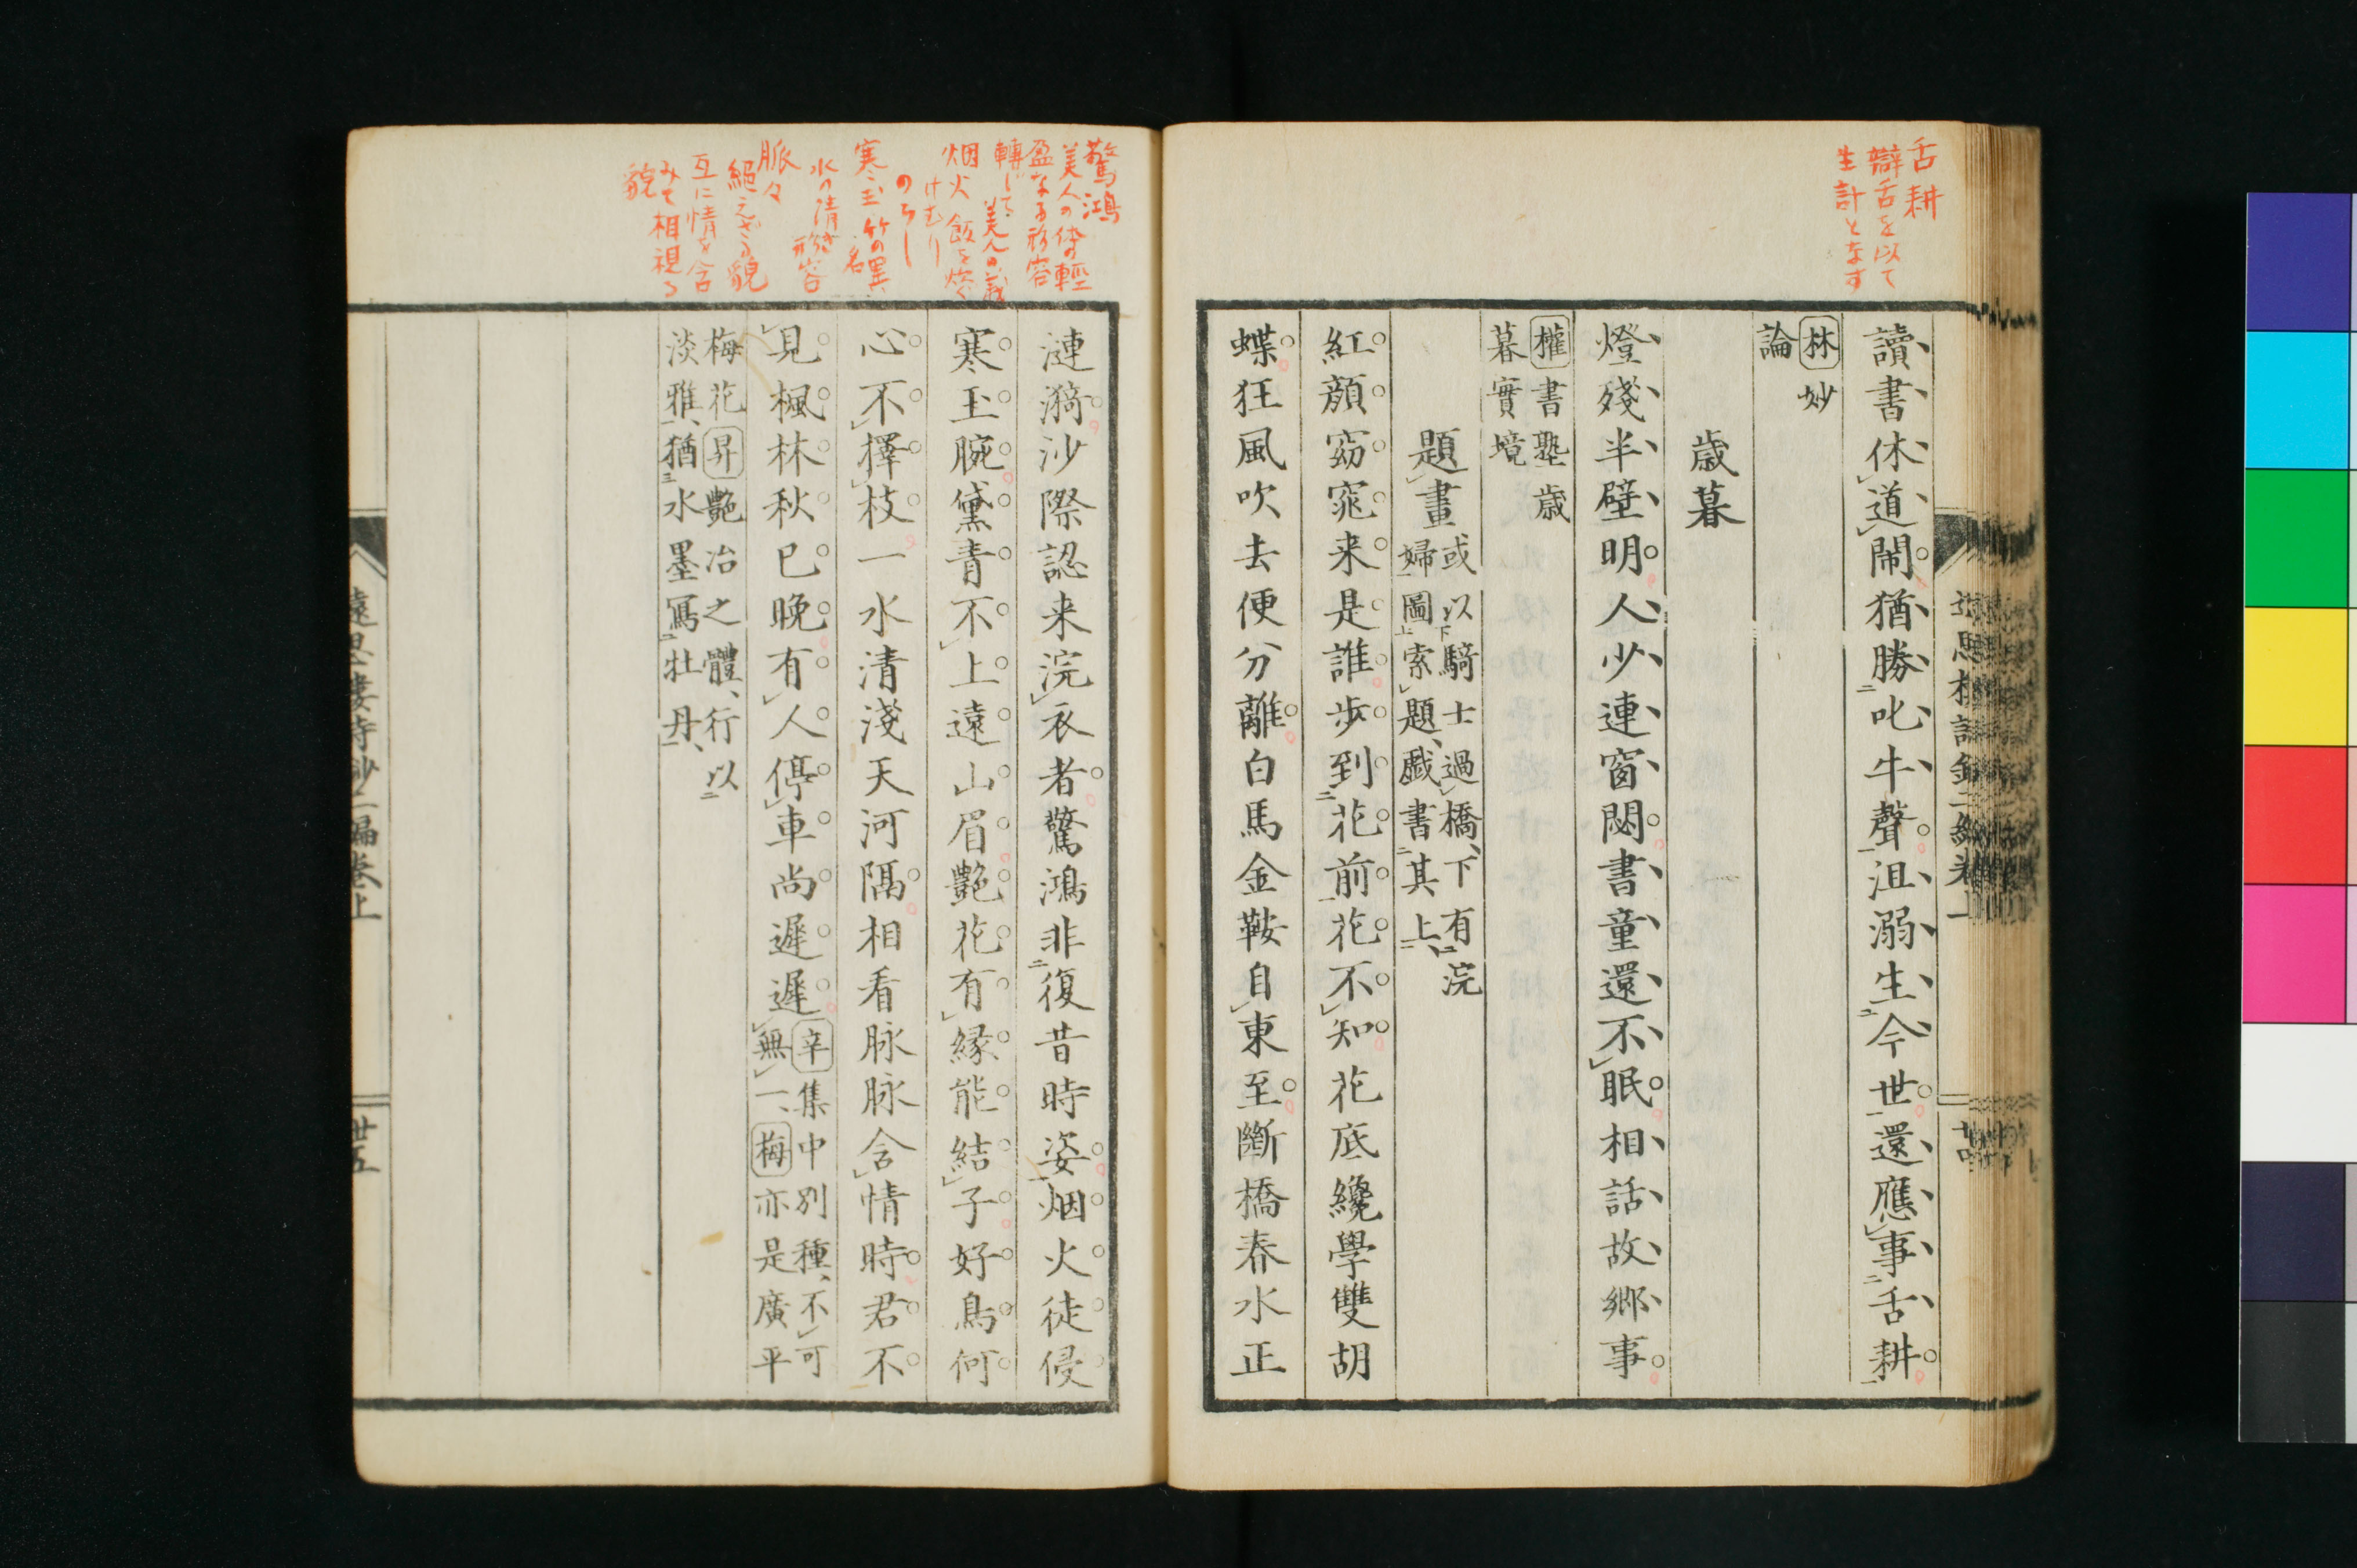 舌耕
辯舌を以て
生計となす
讀書休道閙猶勝叱牛聲沮溺生今世還應事舌耕
林 妙
論
歳暮
燈殘半壁明人少連窗閟書童還不眠相話故郷事
權 書塾歳
暮實境
題畫 或以騎士過橋下有浣
婦圖索題戲書其上
紅顔窈窕来是誰歩到花前花不知花底纔學雙胡
蝶狂風吹去便分離白馬金鞍自東至斷橋春水正
驚鴻
美人の体の輕
盈なる形容
轉じて美人の義
烟火 飯を炊く
けむり
のろし
寒玉 竹の異名
水の清き形容
脈々
絕えざる貌
互に情を含
みて相視る
貌
漣漪沙際認来浣衣者驚鴻非復昔時姿烟火徒侵
寒玉腕黛青不上遠山眉艶花有縁能結子好鳥何
心不擇枝一水清淺天河隔相看脉脉含情時君不
見楓林秋已晩有人停車尚遲遲 辛 集中別種不可
無一 梅 亦是廣平
梅花 昇 艶冶之體行以
淡雅猶水墨寫牡丹
遠思樓詩鈔二編卷上
廿五